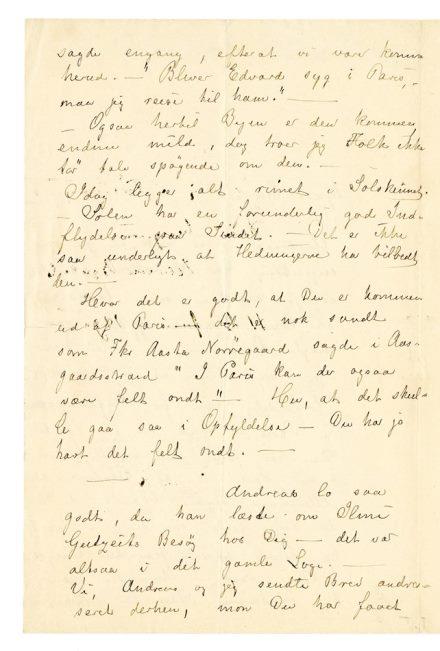 sagde engang, efterat vi vare komne
herud. — "Bliver Edvard syg i Paris, —
maa jeg reise til ham." —
— Ogsaa hertil Byen er den kommen
endnu mild, dog troer jeg Folk ikke
tør tale spøgende om den. —
Idag ligger alt rimet i Solskinnet.
— Solen har en forunderlig god Ind-
flydelse paa Sindet. — Det er ikke
saa underligt at Hedningerne har tilbedt
den. —
Hvor det er godt, at Du er kommen
ud af Paris — det er nok sandt
som Frk Aasta Nørregaard sagde i Aas-
gaardstrand "I Paris kan de ogsaa
være felt ondt" — Hu, at det skul-
le gaa saa i Opfyldelse — Du har jo
havt det felt ondt. —
Andreas lo saa
godt, da han læste om Ilmi
Gutzeits Besøg hos Dig — det var
altsaa i dit gamle Logi. —
Vi, Andreas og jeg sendte Brev andres-
seret derhen, mon Du har faaet